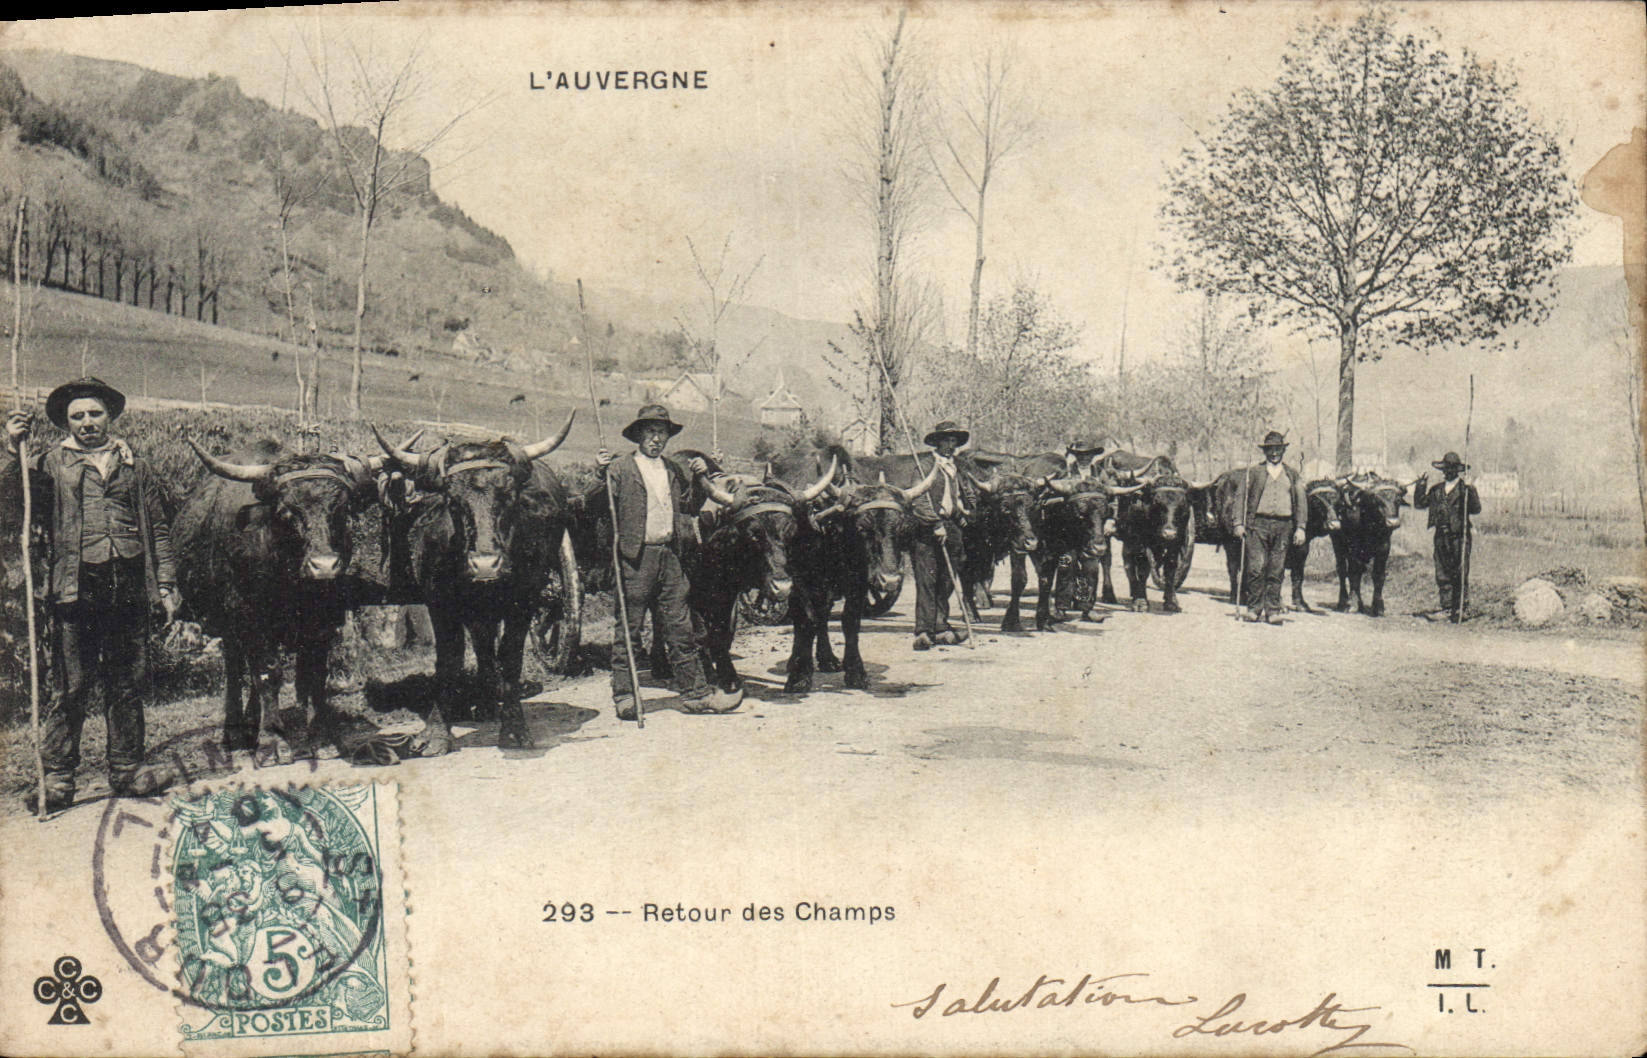 L'AUVERGNE
293 -- Retour des Champs
C
C & C
C
5
POSTES
M T.
I. L.
Salutation